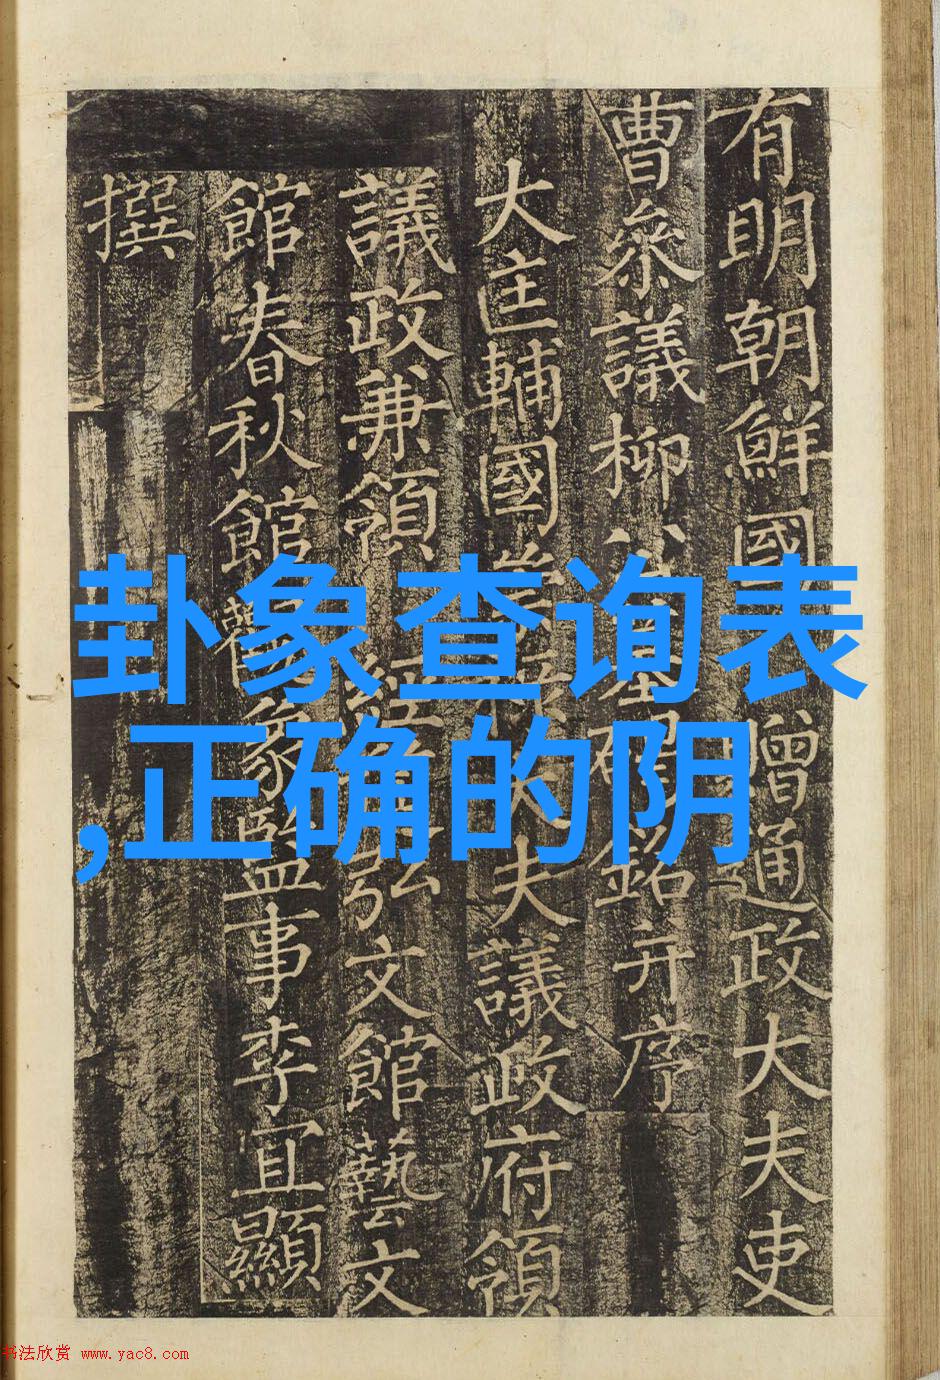 有明朝鮮國贈通政大夫吏
曹叅議柳公墓碣銘并序
大匡輔國崇祿大夫議政府領
議政兼領經筵弘文館藝文
館春秋館觀象監事李宜顯
撰
卦象查询表
,正确的阴
书法欣赏 www.yac8.com